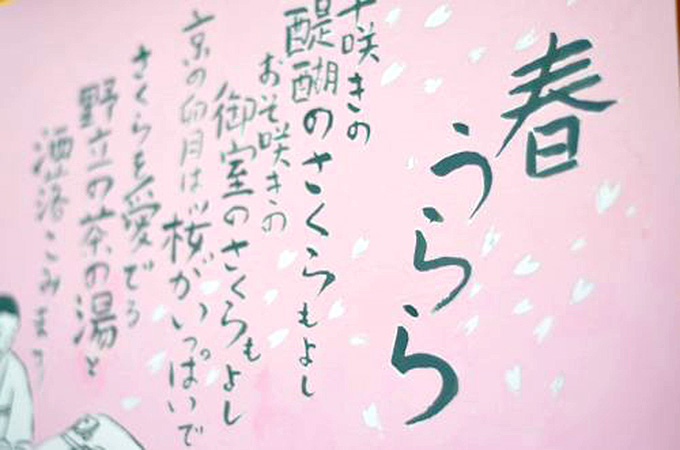 春うらら
十咲きの
醍醐のさくらもよし
おそ咲きの
御室のさくらもよし
京の卯月は桜がいっぱいで
さくらを愛でる
野立の茶の湯と
洒落こみます